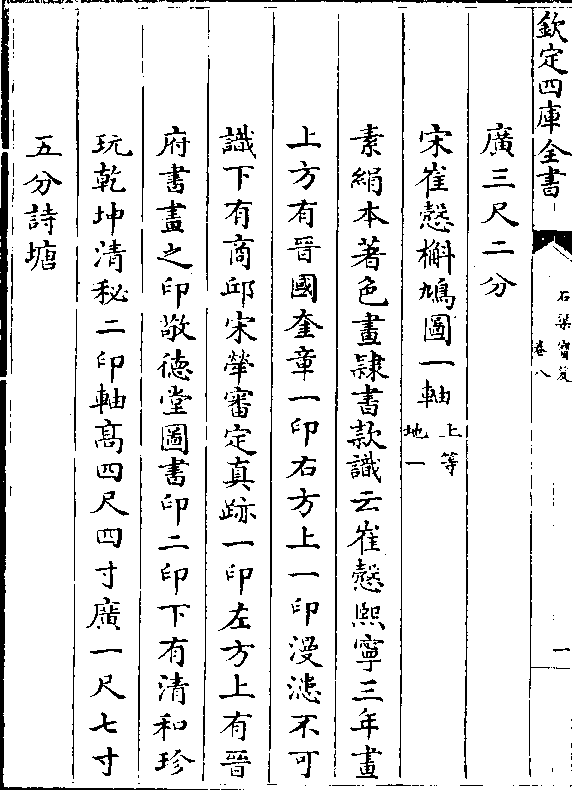 欽定四庫全書
石渠寶笈
卷八
一
廣三尺二分
宋崔慤槲鳩圖一軸上等
地一
素絹本著色畫隸書款識云崔慤熙寧三年畫
上方有晉國奎章一印右方上一印漫漶不可
識下有商邱宋犖審定真跡一印左方上有晉
府書畫之印敬德堂圖書印二印下有清和珍
玩乾坤清秘二印軸髙四尺四寸廣一尺七寸
五分詩塘